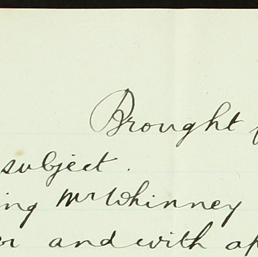 Brought
subject.
Mr Whinney
and with